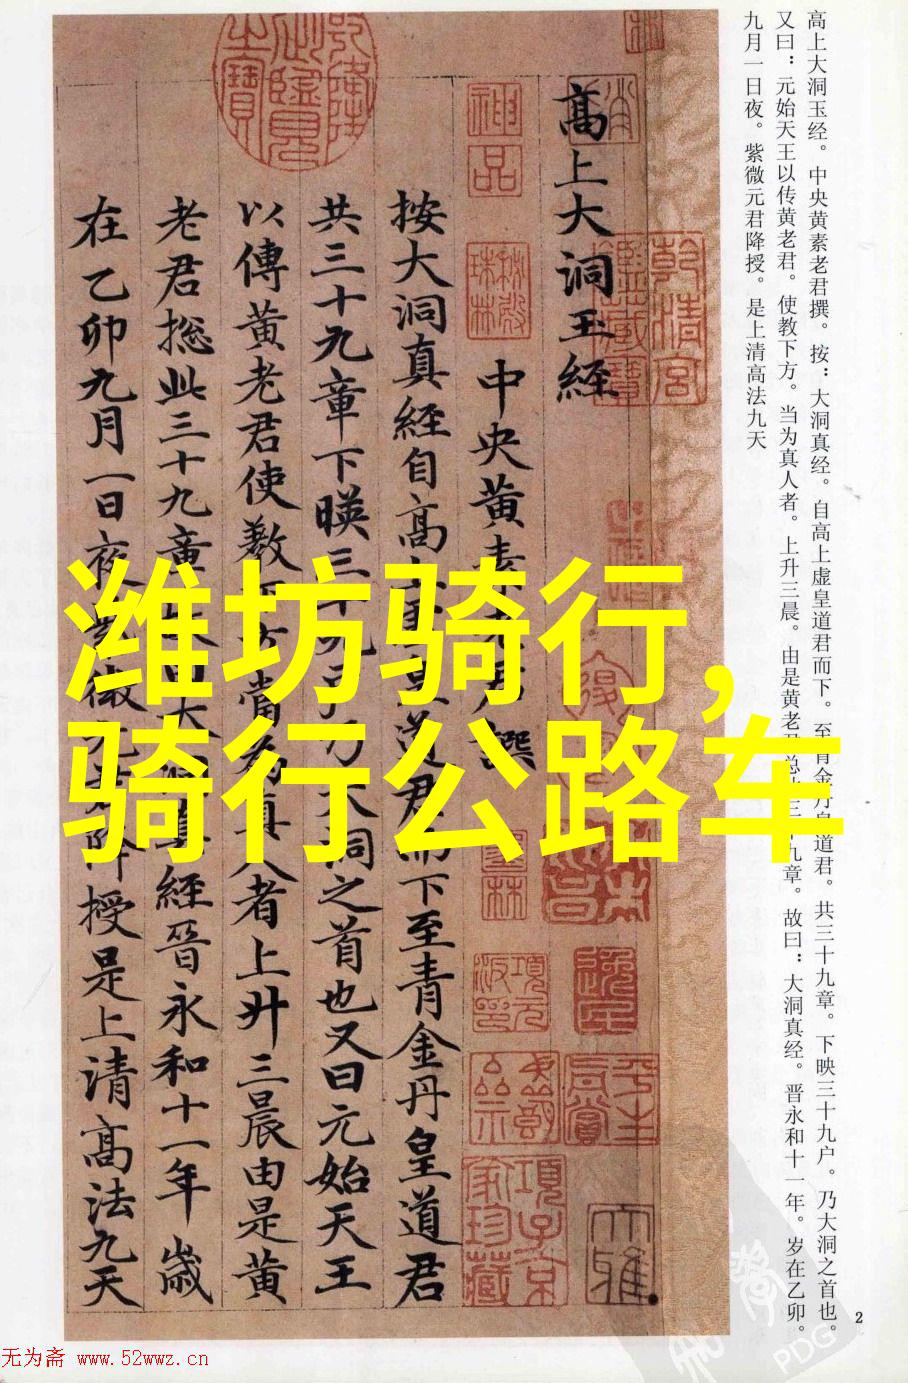 潍坊骑行,
骑行公路车
高上大洞玉经。中央黄素老君撰。按：大洞真经。自高上虚皇道君而下。至青金丹皇道君。共三十九章。下映三十九户。乃大洞之首也。
又曰：元始天王以传黄老君。使教下方。当为真人者。上升三晨。由是黄老君总此三十九章。故曰：大洞真经。晋永和十一年。岁在乙卯。
九月一日夜。紫微元君降授。是上清高法九天
高上大洞玉經
中央黄素老君撰
按大洞真經自高上虚皇道君而下至青金丹皇道君
共三十九章下暎三十九户乃大洞之首也又曰元始天王
以傳黄老君使教下方當為真人者上升三晨由是黄
老君捴此三十九章故曰大洞真經晉永和十一年歲
在乙卯九月一日夜紫微元君降授是上清高法九天
神品
墨林
項元汴印
項子京家珍藏
平生真賞
大雅
2
PDG
无为斋 www.52wwz.cn